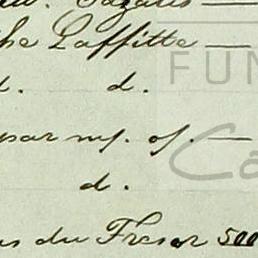 he Laffitte —
d. d.
par n/. o/. —
d.
du Tresor 500
FUN
Ca